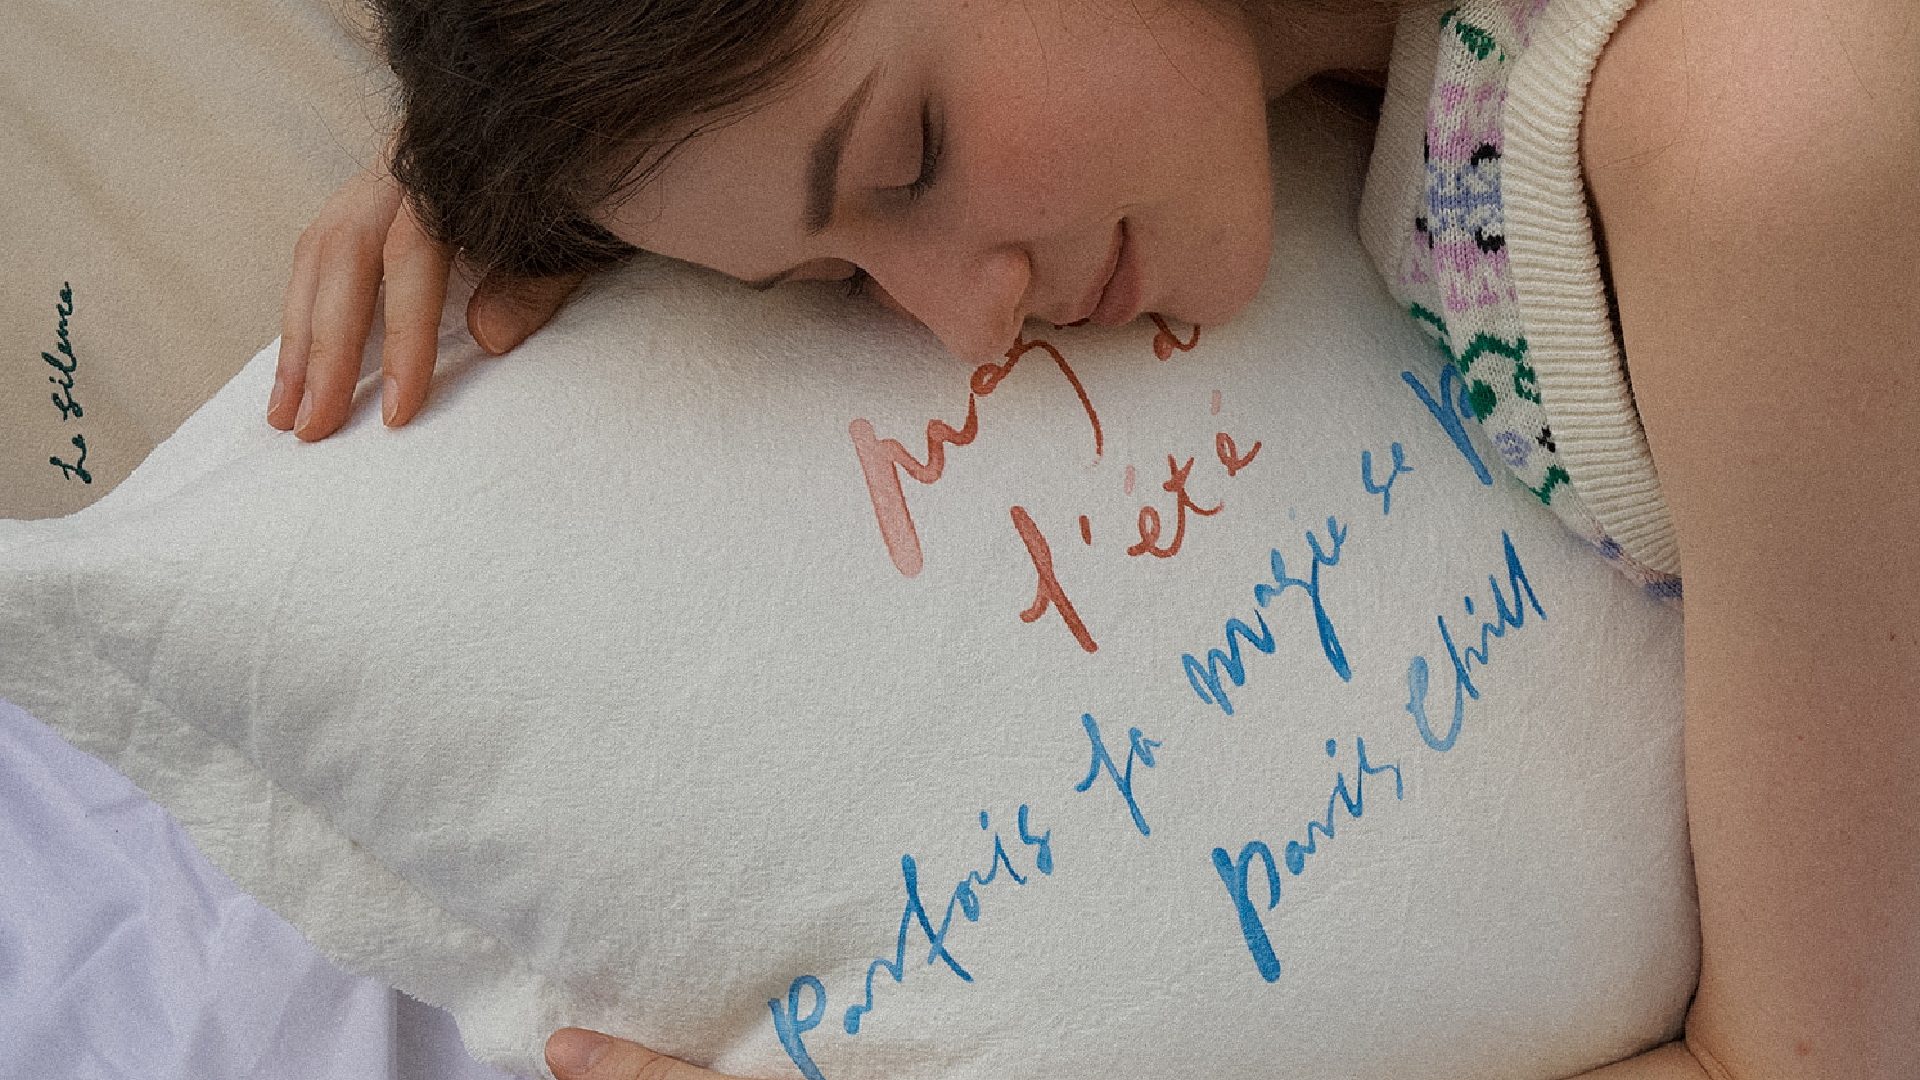 Le Silence
l'été
Parfois la magie se
Paris Chill